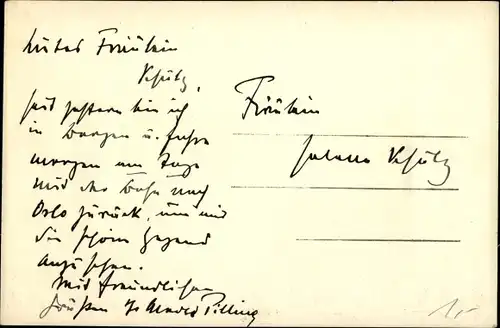 Liebes Fräulein
Schütz,
seit gestern bin ich
in Bergen u. fahre
morgen am Tage
mit der Bahn nach
Oslo zurück, um mir
die schöne Gegend
anzusehen.
Mit freundlichen
Grüßen Ihr Arnold Pilling
Fräulein
Helene Schütz